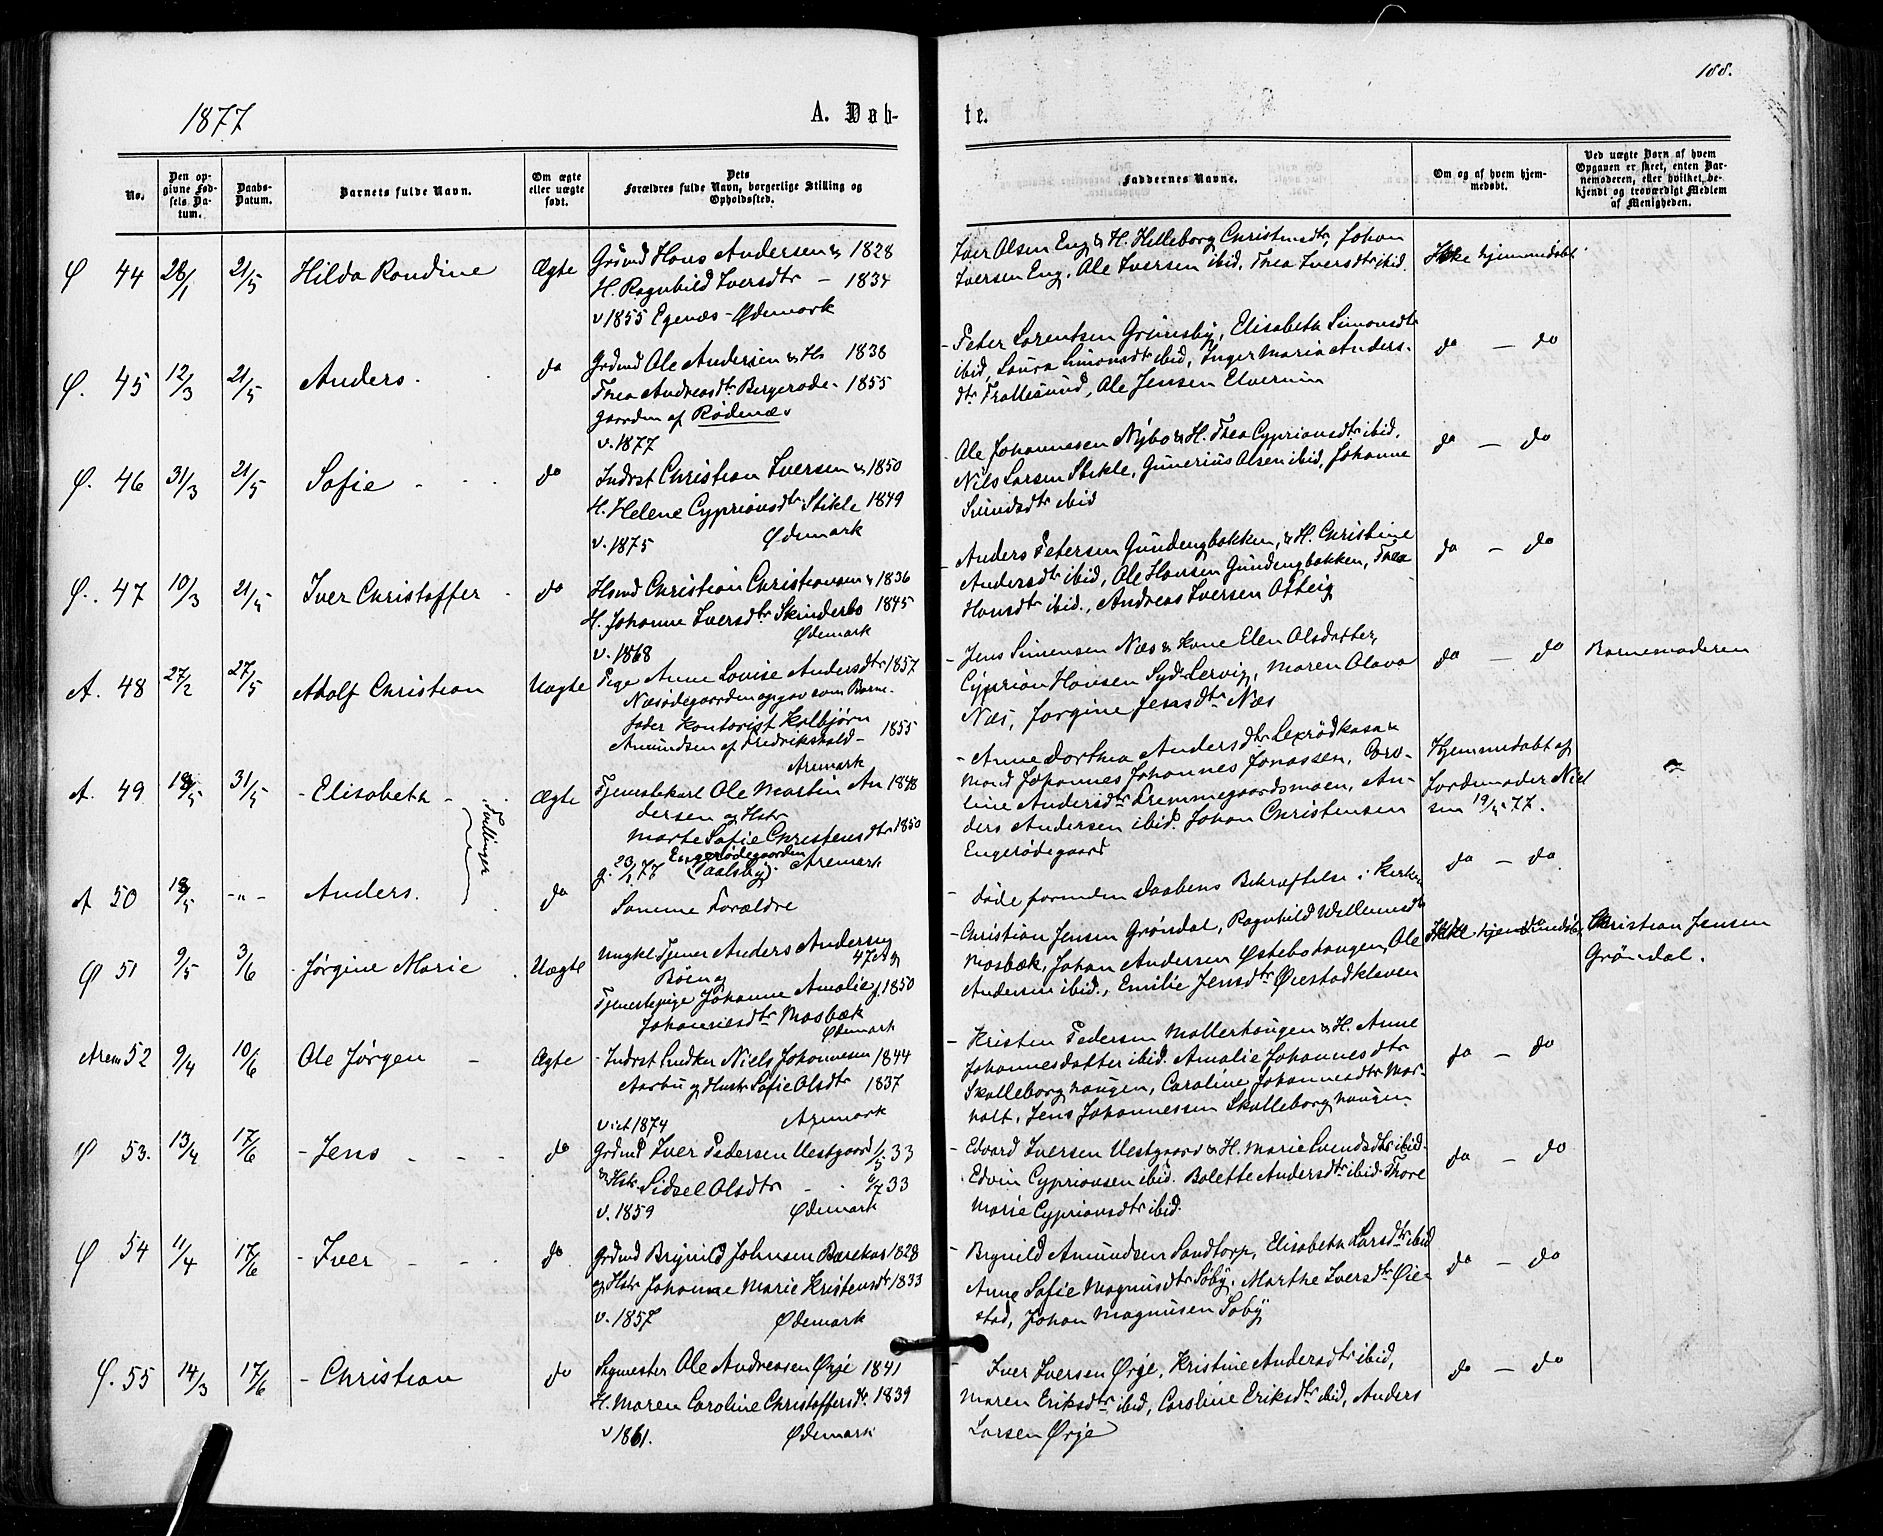 188.
1877
A. Døb-
te.
No.
Den op-
givne Fød-
sels Da-
tum.
Daabs-
Datum.
Barnets fulde Navn.
Om ægte
eller uægte
født.
Dets
Forældres fulde Navn, borgerlige Stilling og
Opholdssted.
Faddernes Navne.
Om og af hvem hjem-
medøbt.
Ved uægte Børn af hvem
Opgaven er skeet, enten Bar-
nemoderen, eller hvilket be-
kjendt og troværdigt Medlem
af Menigheden.
Ø 44 28/1 21/5 Hilda Randine Ægte
Grdmd Hans Andersen & 1828
H. Ragnhild Iversdtr - 1834
v 1855 Egenæs - Ødemark
Iver Olsen Eng & H. Helleborg Christensdtr, Johan
Iversen Eng, Ole Iversen ibid, Thea Iversdtr ibid.
Ikke hjemmedøbt
Ø. 45 12/3 21/5 Anders. do
Grdmd Ole Andersen & H. 1838
Thea Andreasdtr Bergerøde- 1855
gaarden af Rødenæs
v. 1877
- Peter Lorentsen Grimsby, Elisabeth Simonsdtr
ibid, Laura Simonsdtr ibid, Inger Maria Anders-
dtr Trollesund, Ole Jensen Elvernin
do - do
Ø. 46 31/3 21/5 Sofie - do
Indrst Christian Iversen & 1850
H. Helene Cypriansdtr Stikle 1849
v. 1875 Ødemark
- Ole Johannesen Nybo & H. Thea Cypriansdtr ibid,
Nils Larsen Stikle, Gunerius Olsen ibid, Johanne
Svendsdtr ibid
do - do
Ø. 47 10/3 21/5 Iver Christoffer do
Hsmd Christian Christiansen & 1836
H. Johanne Iversdtr Skinderbo 1845
Ødemark
v. 1868
- Anders Petersen Gundengbakken, & H. Christine
Andersdtr ibid, Ole Hansen Gundengbakken, Thea
Hansdtr ibid., Andreas Iversen Otteig
do - do
A. 48 27/2 27/5 Adolf Christian Uægte
Pige Anne Lovise Andersdtr 1857
Næsødegaarden opgav som Barne-
fader Kontorist Kolbjørn
Amundsen af Fredrikshald - 1855
Aremark
- Jens Simensen Næs & Kone Elen Olsdatter,
Cyprian Hansen Syd-Lervig, Maren Olava
Næs, Jørgine Jensdtr Næs
do - do
Barnemoderen
A. 49 18/5 31/5 - Elisabeth - Ægte
Tvillinger
Tjenestekarl Ole Martin An 1848
dersen og Hstr
Marte Sofie Christensdtr 1850
Engerødegaarden
g. 23/1 77 (Taalsby). Aremark
- Anne Dorthea Andersdtr Lexrødkasa &
Mand Johannes Johannes Jonassen, Caro-
line Andersdtr Kremmegaardsmoen, An-
ders Andersen ibid. Johan Christensen
Engerødegaard
Hjemmedøbt af
Jordmoder Niel
sen 19/5 77.
A 50 18/5 - " - Anders. do
Samme Forældre
- døde forinden Daabens Bekræftelse i Kirken
do - do
Ø 51 9/5 3/6 - Jørgine Marie Uægte
Ungkl Tjener Anders Andersen
47
Bøen og
Tjenestepige Johanne Amalie f. 1850
Johannesdtr Mosbæk
Ødemark
- Christian Jensen Grøndal, Ragnhild Willumsdtr
Mosbæk, Johan Andersen Østebøtangen, Ole
Andersen ibid., Emilie Jensdtr Øiestadkleven
Ikke hjemmedøbt
Christian Jensen
Grøndal.
Arem 52 9/4 10/6 Ole Jørgen - Ægte
- Indrst Snedker Niels Johannesen 1844
Aarbu og Hustr Sofie Olsdtr 1837
viet 1874 Aremark
- Kristen Pedersen Møllerhaugen & H. Anne
Johannesdatter ibid. Amalie Johannesdtr
Skolleborghaugen, Caroline Johannesdtr Mos-
holt, Jens Johannessen Skolleborghaugen
do - do
Ø 53. 13/4 17/6 - Jens - do
Grdmd Iver Pedersen Vestgaard 1/5 33
& Hstr Sidsel Olsdtr - 6/7 33
v. 1859 Ødemark
- Edvard Iversen Vestgaard & H. Marie Svendsdtr ibid.
Edvin Cypriansen ibid. Bolette Andersdtr ibid. Thore
Marie Cypriansdtr ibid.
do - do
Ø 54 11/4 17/6 - Iver - do
Grdmd Brynild Johnsen Bærekas 1828
og Hstr Johanne Marie Kristensdtr 1833
v. 1857 Ødemark
- Brynild Amundsen Sandtorp, Elisabeth Larsdtr ibid
Anne Sofie Magnusdtr Søby, Marthe Iversdtr Øie-
stad, Johan Magnusen Søby
do - do
Ø. 55 14/3 17/6 - Christian do
Sagmester Ole Andreasen Ørje 1841
H. Maren Caroline Christoffersdtr 1839
v 1861. Ødemark
- Iver Iversen Ørje, Kristine Andersdtr ibid,
Maren Eriksdtr ibid, Caroline Eriksdtr ibid, Anders
Larsen Ørje
do - do